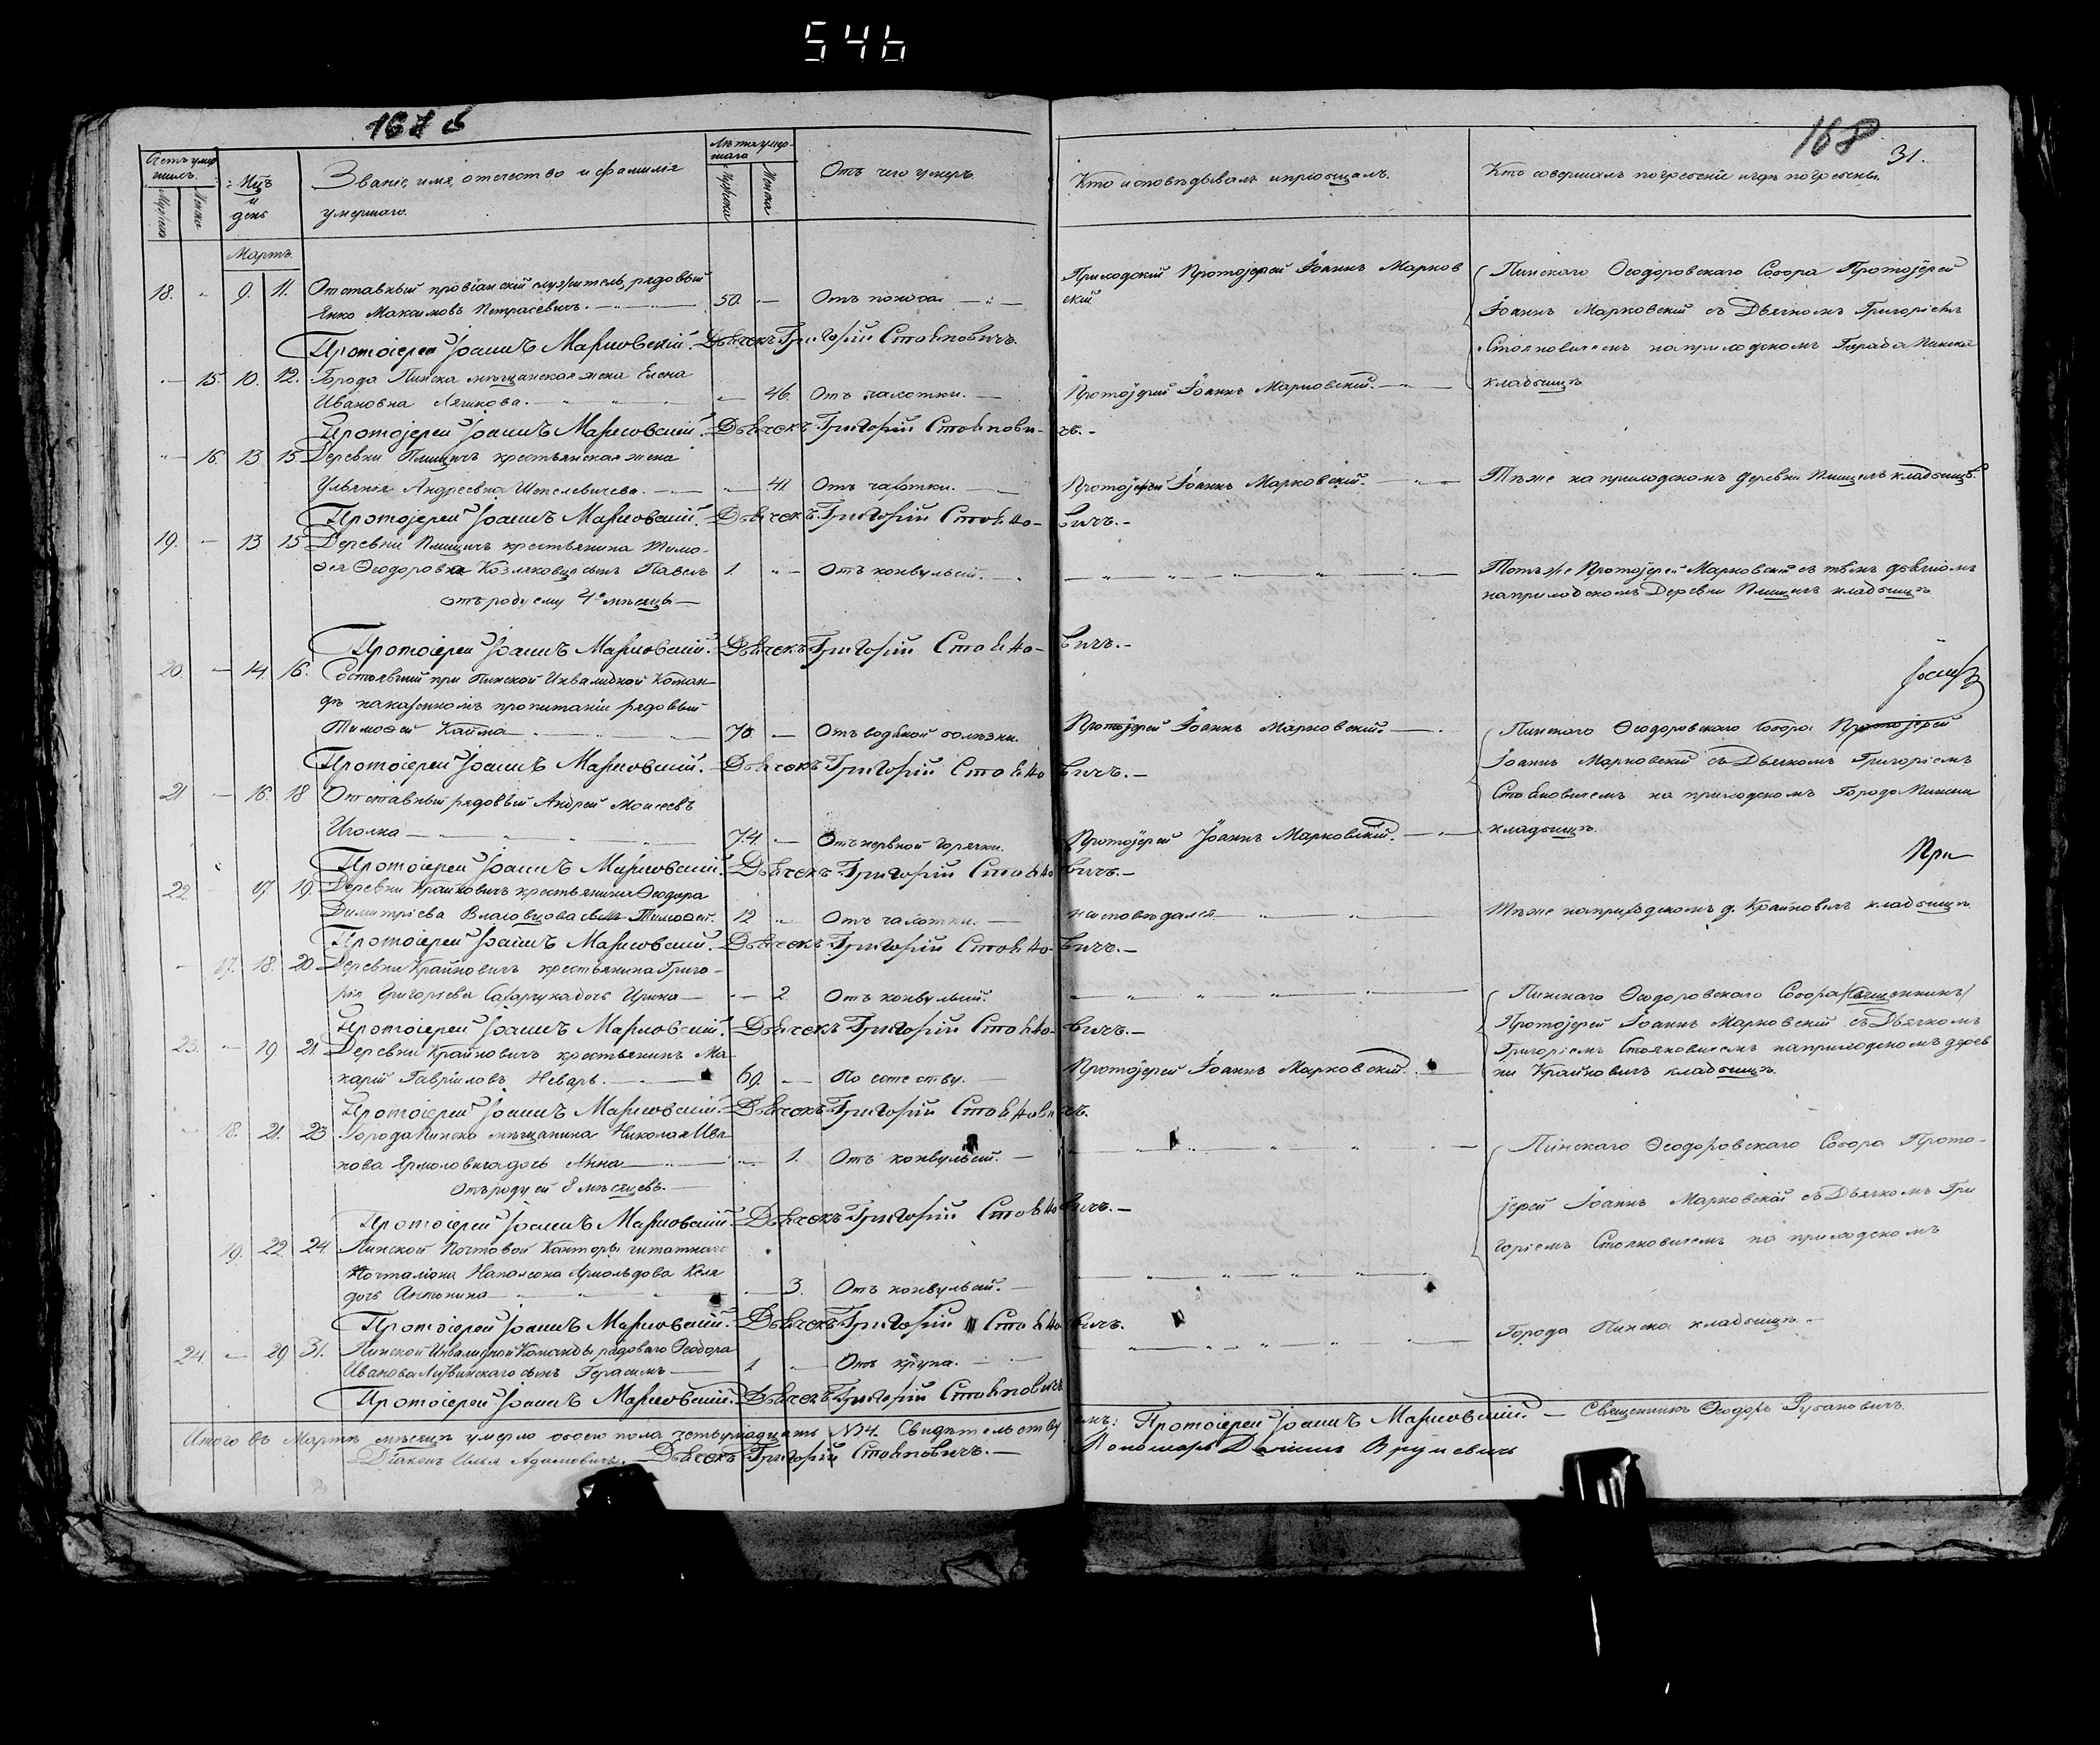 546
167 об
168
31.
Счетъ умершихъ.
Мужеска
Женска
Мцъ и день
Званіе, имя, отечество и фамилія умершаго.
Лѣта умершаго
Мужеска
Женска
Отъ чего умеръ.
Кто исповѣдывалъ и пріобщалъ.
Кто совершалъ погребеніе и гдѣ погребены.
Мартъ.
18. - 9. 11. Отставный провіанскій служитель, рядовый
Янко Максимовъ Петрасевичъ. 50. — Отъ поноса —
Приходскій Протоіерей Іоаннъ Марков
скій
Пинскаго Ѳеодоровскаго Собора Протоіерей
Іоаннъ Марковскій съ Дьячкомъ Григоріемъ
Стояновичемъ на приходскомъ Города Пинска
кладбищѣ
Протоіерей Іоаннъ Марковскій. Дьячекъ Григорій Стояновичъ.
— 15. 10. 12. Города Пинска мѣщанская жена Елена
Ивановна Ляшкова. — 46. Отъ чахотки. —
Протоіерей Іоаннъ Марковскій. —
Протоіерей Іоаннъ Марковскій. Дьячекъ Григорій Стояновичъ. -
— 16. 13 15 Деревни Плищичъ крестьянская жена
Ульянія Андреевна Шепелевичева. — 41 Отъ чахотки. —
Протоіерей Іоаннъ Марковскій. —
Тѣ же на приходскомъ деревни Плищичъ кладбищѣ.
Протоіерей Іоаннъ Марковскій. Дьячекъ Григорій Стояновичъ. -
19. — 13 15 Деревни Плищичъ крестьянина Тимо-
ѳея Ѳеодорова сынъ Павелъ 1. — Отъ конвульсій.
отъ роду ему 4 мѣсяца —
Тотъ же Протоіерей Марковскій съ тѣмъ дьячкомъ
на приходскомъ Деревни Плищичъ кладбищѣ
Протоіерей Іоаннъ Марковскій. Дьячекъ Григорій Стояновичъ. -
20. — 14. 16. Состоявшій при Пинской Инвалидной Коман-
дѣ на казенномъ пропитаніи рядовый
Тимоѳей Кайма — 70. — Отъ водяной болѣзни.
Протоіерей Іоаннъ Марковскій. —
Пинскаго Ѳеодоровскаго Собора Протоіерей
Іоаннъ Марковскій съ Дьячкомъ Григоріемъ
Стояновичемъ на приходскомъ Города Пинска
кладбищѣ.
Протоіерей Іоаннъ Марковскій. Дьячекъ Григорій Стояновичъ. —
21 — 16. 18 Отставный рядовый Андрей Моисеевъ
Иголка — 74. — Отъ нервной горячки.
Протоіерей Іоаннъ Марковскій. —
Протоіерей Іоаннъ Марковскій. Дьячекъ Григорій Стояновичъ. —
При
22 17 19. Деревни Крайновичъ крестьянина Ѳеодора
Димитріева сынъ Тимоѳей. 12 " Отъ чахотки. —
не исповѣдался. —
Тѣ же на приходскомъ д. Крайновичъ кладбищѣ.
Протоіерей Іоаннъ Марковскій. Дьячекъ Григорій Стояновичъ. —
- 17. 18. 20 Деревни Крайновичъ крестьянина Григо-
рія Григоріева дочь Ирина — 2. Отъ конвульсій.
Пинскаго Ѳеодоровскаго Собора (Священникъ)
Протоіерей Іоаннъ Марковскій съ Дьячкомъ
Григоріемъ Стояновичемъ на приходскомъ дерев
ни Крайновичъ кладбищѣ.
Протоіерей Іоаннъ Марковскій. Дьячекъ Григорій Стояновичъ. —
23. — 19 21. Деревни Крайновичъ крестьянинъ Ма-
карій Гавріиловъ Неваръ. — 69. — По естеству. —
Протоіерей Іоаннъ Марковскій.
Протоіерей Іоаннъ Марковскій. Дьячекъ Григорій Стояновичъ.
18. 21. 23 Города Пинска мѣщанина Николая Ива
нова Ярмоловича дочь Анна — 1. Отъ конвульсій. —
Отъ роду ей 8 мѣсяцевъ. —
Пинскаго Ѳеодоровскаго Собора Прото-
іерей Іоаннъ Марковскій съ Дьячкомъ Гри
горіемъ Стояновичемъ на приходскомъ
Города Пинска кладбищѣ. —
Протоіерей Іоаннъ Марковскій. Дьячекъ Григорій Стояновичъ. —
19. 22. 24. Пинской Почтовой Канторы
Почталіона Наполеона
дочь Антонина — 3. Отъ конвульсій. —
Протоіерей Іоаннъ Марковскій. Дьячекъ Григорій Стояновичъ.
24. — 29 31. Пинской Инвалидной Команды рядоваго Ѳеодора
Иванова сынъ Герасимъ — 1 — Отъ крупа. —
Протоіерей Іоаннъ Марковскій. Дьячекъ Григорій Стояновичъ
Итого въ Мартѣ мѣсяцѣ умерло обоего пола четырнадцать №14. Свидѣтельству
емъ: Протоіерей Іоаннъ Марковскій. — Священникъ Ѳеодоръ
Діаконъ Илья Адамовичъ. — Дьячекъ Григорій Стояновичъ. —
Пономарь